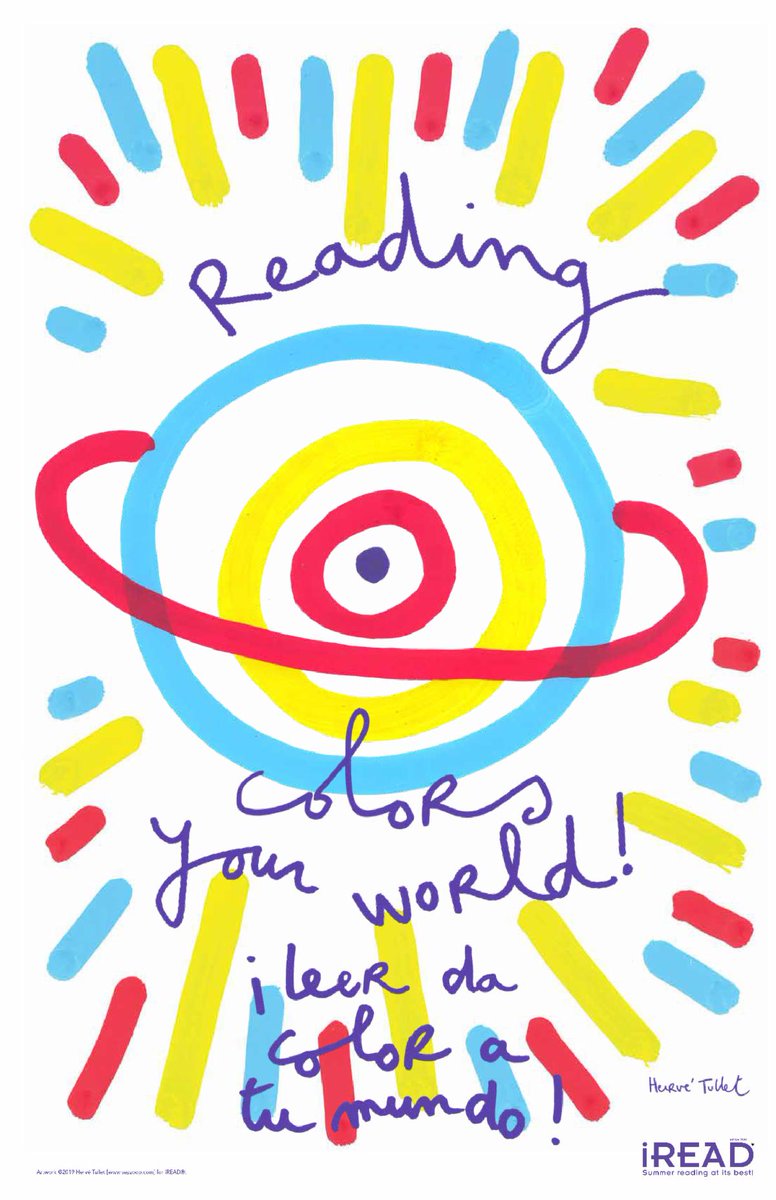 Reading
colors
your world!
¡leer da
color a
tu mundo!
Hervé Tullet
iREAD
Summer reading at its best!
Artwork ©2019 Hervé Tullet
for iREAD®.